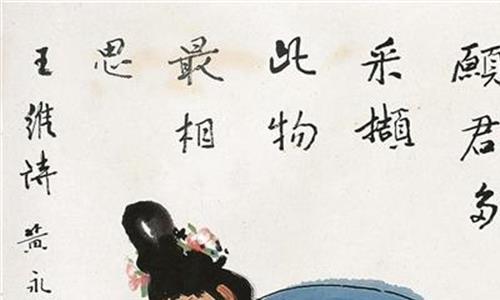 願君多
采擷
此物
最相
思
王維詩黄永